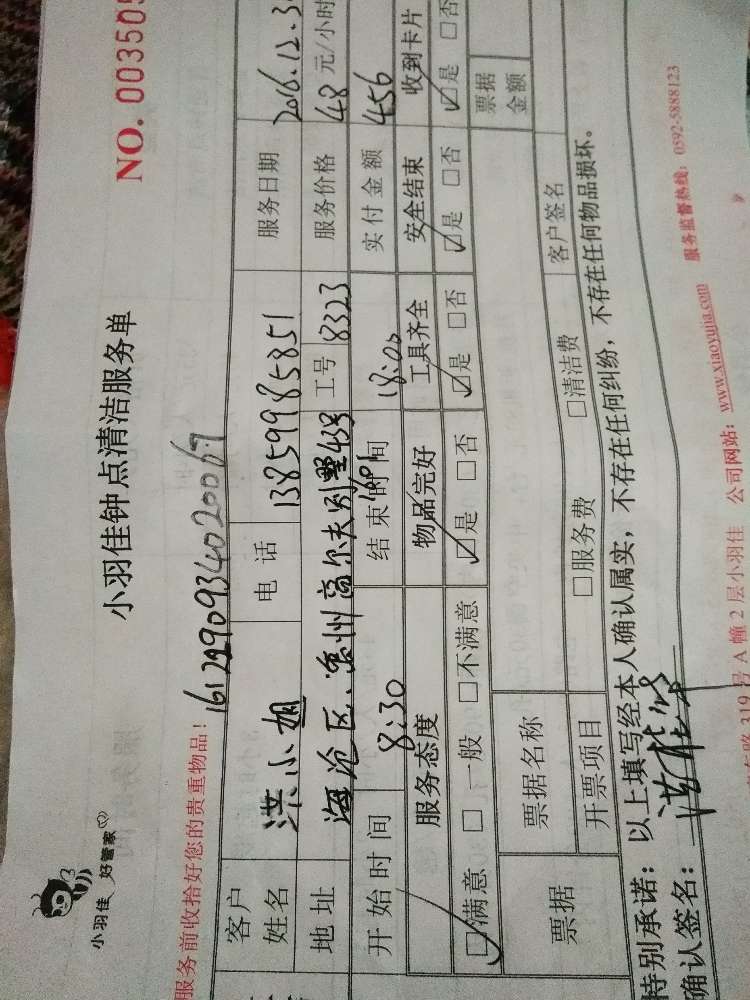 小羽佳 好管家
小羽佳钟点清洁服务单
NO. 003505
服务前收拾好您的贵重物品！
1612290934020069
客户姓名 洪小姐 电话 13859985851 服务日期 2016.12.3
地址 海沧区、 州高尔夫别墅43号 工号 8323 服务价格 48元/小时
开始时间 8:30 结束时间 18:00 实付金额 456
服务态度 物品完好 工具齐全 安全结束 收到卡片
☑满意 □一般 □不满意 ☑是 □否 ☑是 □否 ☑是 □否 ☑是 □否
票据 票据名称 票据金额
开票项目 □服务费 □清洁费 客户签名
特别承诺：以上填写经本人确认属实，不存在任何纠纷，不存在任何物品损坏。
确认签名：
路319号A幢2层小羽佳 公司网站：www.xiaoyujia.com 服务监督热线：0592-5888123